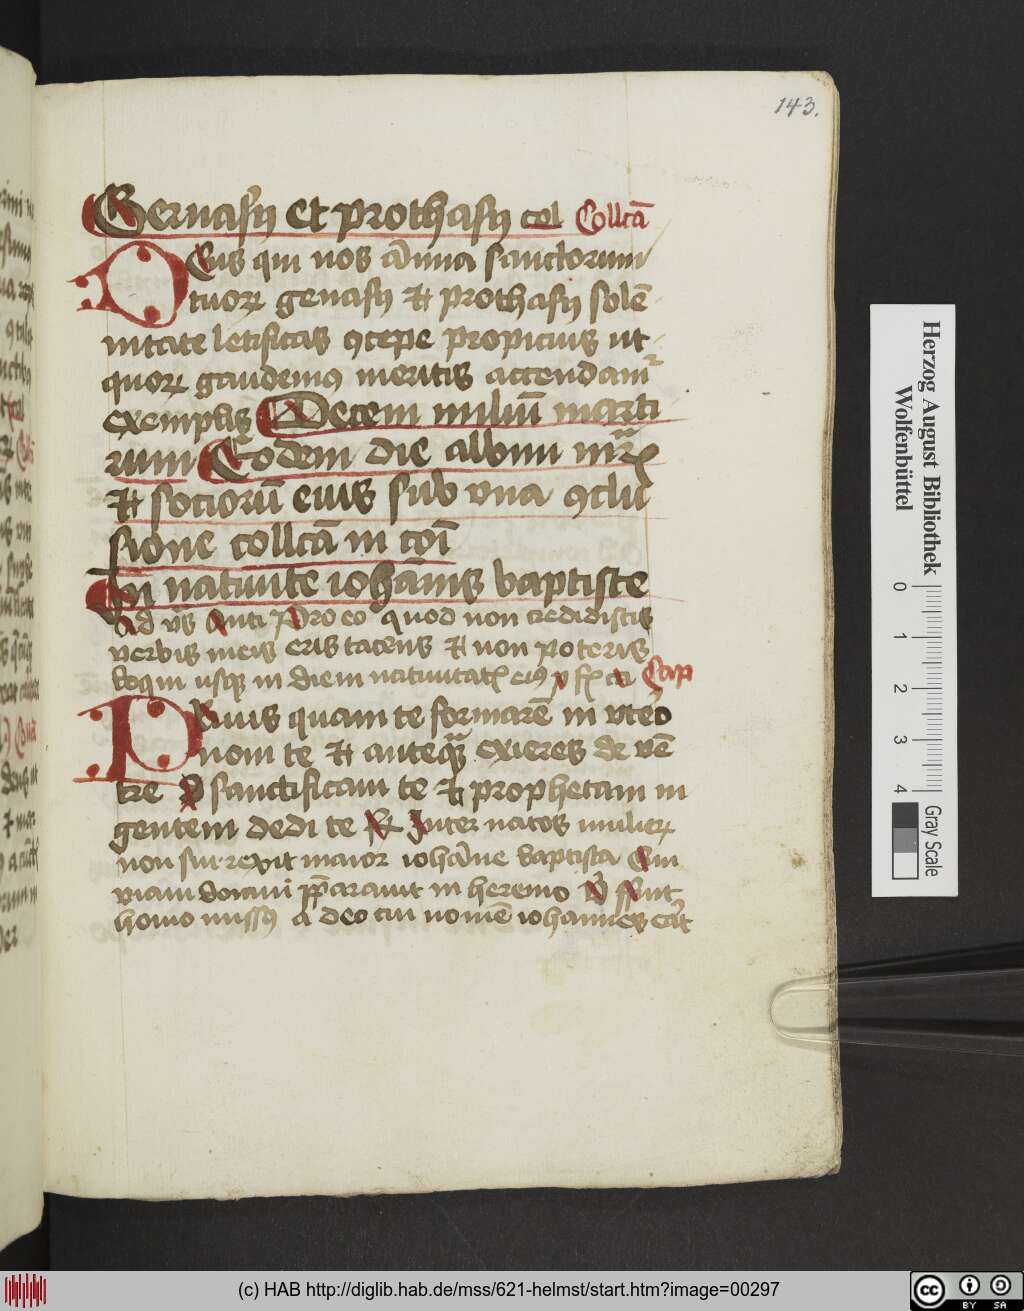 143.
Geruasij et prothasij col Collcā
Deus qui nos ānnua sanctorum
tuorꝝ geruasij et prothasij solē
nitate letificas ꝯcepe propicius ut
quorꝝ gaudemꝰ meritis accendam᷑
exemplis Decem miliū marti
rum Eodem die albini mr̄ꝫ
et sociorū eius sub vna ꝯclu
sione collcā in coī
In natiuite iohānis baptiste
Ad vs̄ Anti Pro eo quod non credidistis
verbis meis eris tacens et non poteris
loqui usqꝫ in diem natiuitatꝭ eiꝰ p Cap
Priusquam te formarē in vtero
noui te et anteqꝫ exieres de vē
tre sanctificaui te et prophetam in
gentem dedi te Inter natos mulierꝝ
non surrexit maior iohāne baptista Qui
viam domini p̄parauit in heremo Fuit
homo missꝰ a deo cui nomē iohannes erat
Herzog August Bibliothek
Wolfenbüttel
0 1 2 3 4
Gray Scale
(c) HAB http://diglib.hab.de/mss/621-helmst/start.htm?image=00297
cc BY SA